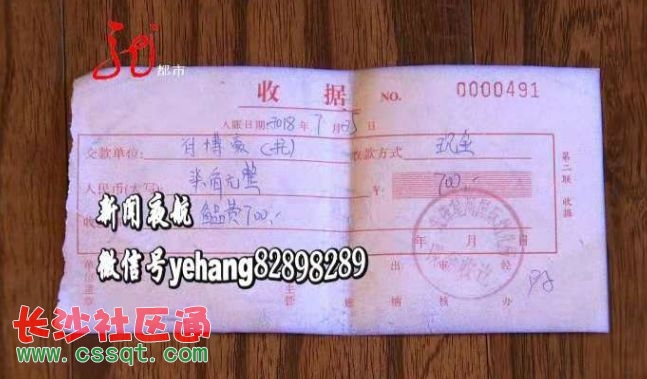 都市
收 据 NO. 0000491
入账日期:2018年7月25日
交款单位: 收款方式 现金
人民币(大写) 柒佰元整 ¥ 700.-
收 700.-
第二联 收据
年 月 日
新闻夜航
微信号yehang82898289
单位盖章 主管 出纳 审核 经办
长沙社区通
www.cssqt.com